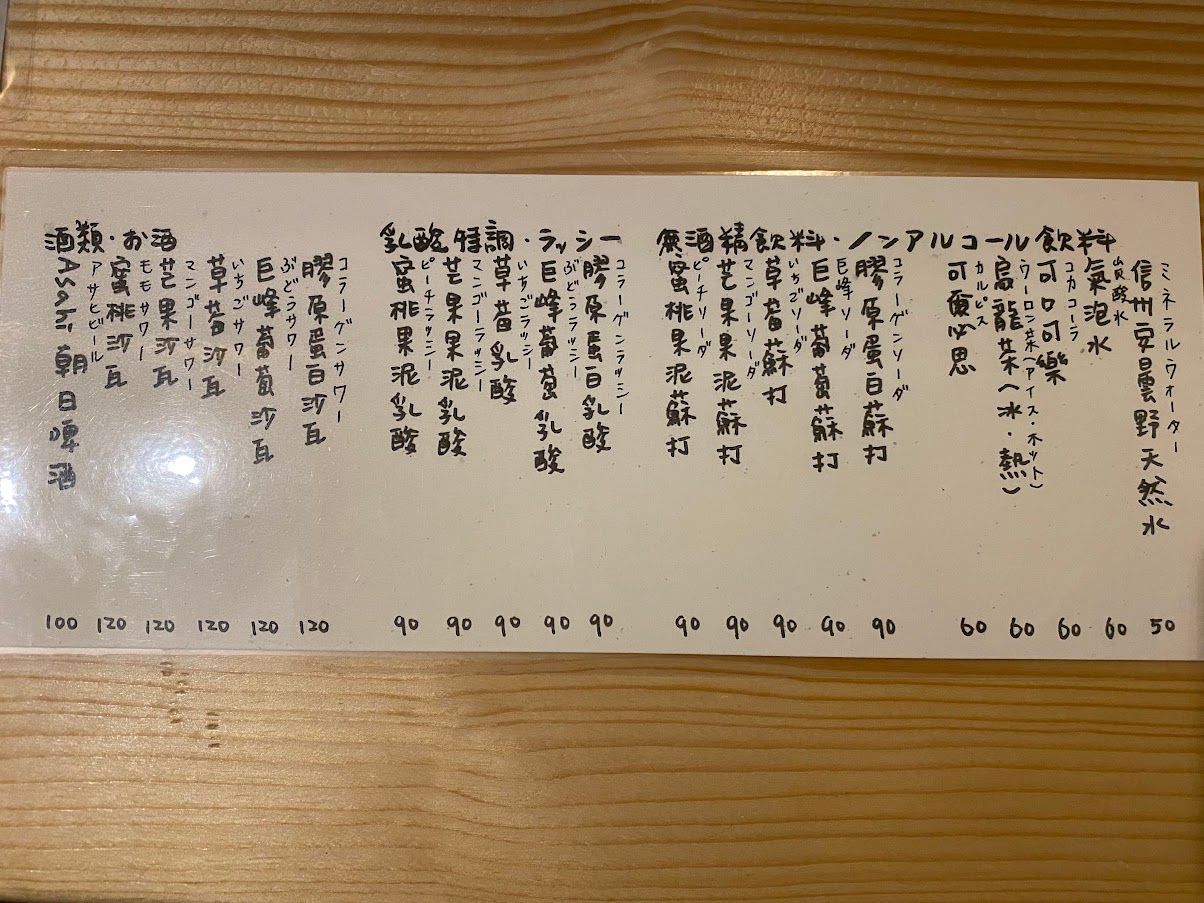 無酒精飲料・ノンアルコール飲料
ミネラルウォーター
信州安曇野天然水 50
炭酸水
氣泡水 60
コカコーラ
可口可樂 60
ウーロン茶(アイス・ホット)
烏龍茶(冰・熱) 60
カルピス
可爾必思 60
コラーゲンソーダ
膠原蛋白蘇打 90
巨峰ソーダ
巨峰葡萄蘇打 90
いちごソーダ
草莓蘇打 90
マンゴーソーダ
芒果果泥蘇打 90
ピーチソーダ
蜜桃果泥蘇打 90
乳酸特調・ラッシー
コラーゲンラッシー
膠原蛋白乳酸 90
ぶどうラッシー
巨峰葡萄乳酸 90
いちごラッシー
草莓乳酸 90
マンゴーラッシー
芒果果泥乳酸 90
ピーチラッシー
蜜桃果泥乳酸 90
酒類・お酒
コラーゲンサワー
膠原蛋白沙瓦 120
ぶどうサワー
巨峰葡萄沙瓦 120
いちごサワー
草莓沙瓦 120
マンゴーサワー
芒果沙瓦 120
モモサワー
蜜桃沙瓦 120
アサヒビール
Asahi朝日啤酒 100